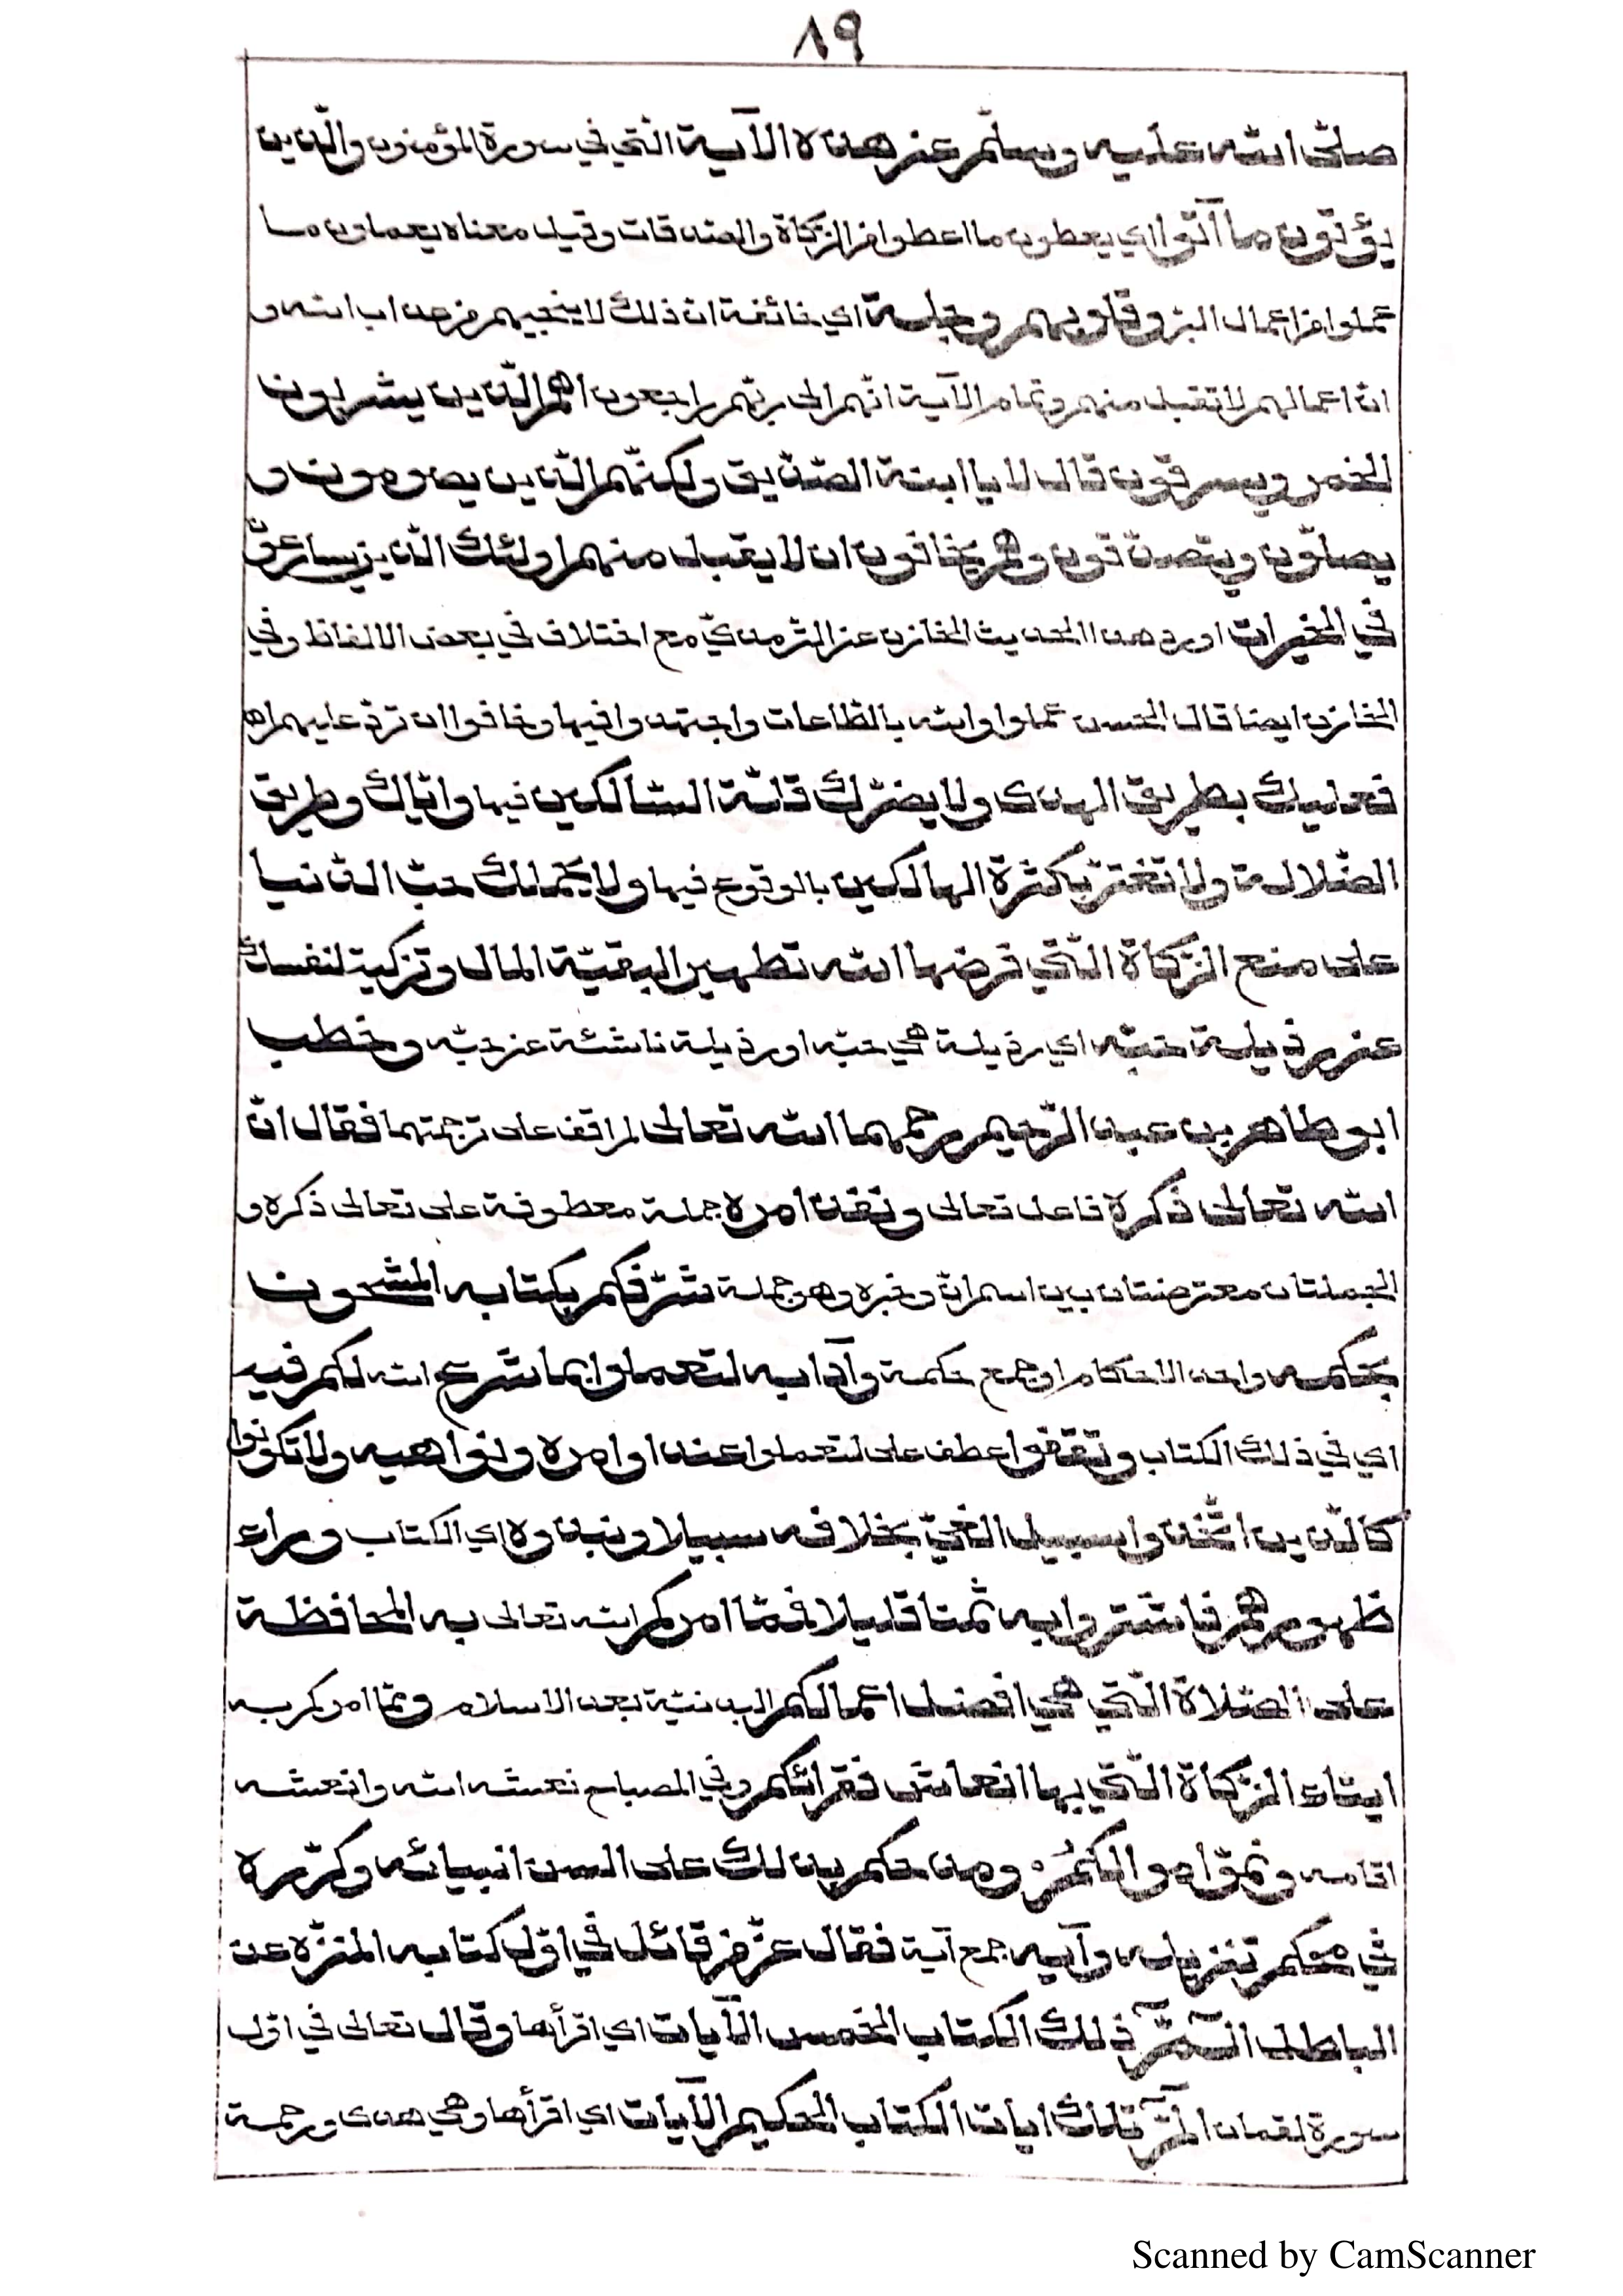 ٨٩
صلّى الله عليه وسلّم عن هذه الآية الّتي في سورة المؤمنون والّذين
يؤتون ما آتوا اي يعطون ما اعطوا من الزّكاة والصّدقات وقيل معناه يعملون ما
عملوا من اعمال البرّ وقلوبهم وجلة اي خائفة انّ ذلك لا ينجيهم من عذاب الله و
انّ اعمالهم لا تقبل منهم وتمام الآية انّهم الى ربّهم راجعون اهم الّذين يشربون
الخمر ويسرقون قال لا يا ابنة الصّدّيق ولكنّهم الّذين يصومون و
يصلّون ويتصدّقون وهم يخافون ان لا يقبل منهم اولئك الّذين يسارعون
في الخيرات اورد هذا الحديث الخازن عن الترمذيّ مع اختلاف في بعض الالفاظ وفي
الخازن ايضا قال الحسن عملوا والله بالطّاعات واجتهدوا فيها وخافوا ان تردّ عليهم اهـ
فعليك بطريق الهدى ولا يضرّك قلّة السّالكين فيها وايّاك وطريق
الضّلالة ولا تغترّ بكثرة الهالكين بالوقوع فيها ولا يحملك حبّ الدّنيا
على منع الزّكاة الّتي فرضها الله تطهيرا لبقيّة المال وتزكية لنفسك
عن رذيلة حبّه اي رذيلة هي حبّه او رذيلة ناشئة عن حبّه وخطب
ابو طاهر بن عبد الرّحيم رحمهما الله تعالى لم اقف على ترجمتهما فقال انّ
الله تعالى ذكره فاعل تعالى ونفذ امره جملة معطوفة على تعالى ذكره و
الجملتان معترضتان بين اسم انّ وخبره وهو جملة شرّفكم بكتابه المشحون
بحكمه واحد الاحكام او جمع حكمة وآدابه لتعملوا بما شرع الله لكم فيه
اي في ذلك الكتاب وتقفوا عطف على لتعملوا عند اوامره ونواهيه ولا تكونوا
كالّذين اتّخذوا سبيل الغيّ بخلافه سبيلا ونبذوه اي الكتاب وراء
ظهورهم فاشتروا به ثمنا قليلا فممّا امركم الله تعالى به المحافظة
على الصّلاة الّتي هي افضل اعمالكم البدنيّة بعد الاسلام وممّا امركم به
ايتاء الزّكاة الّتي بها انعاش فقرائكم وفي المصباح نعشه الله وانعشه
اقامه ونموّ اموالكم وقد حكم بذلك على السن انبيائه وكرّره
في محكم تنزيله وآيه جمع آية فقال عزّ من قائل في اوّل كتابه المنزّه عن
الباطل الٓمّٓ ذلك الكتاب الخمس الآيات اي اقرأها وقال تعالى في اوّل
سورة لقمان الٓمّٓ تلك ايات الكتاب الحكيم الآيات اي اقرأها وهي هدى ورحمة
Scanned by CamScanner